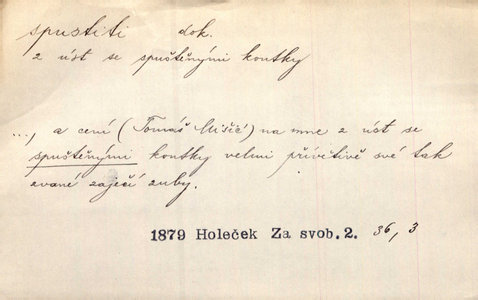 spustiti dok.
z úst se spuštěnými koutky
..., a cení (Tomáš Mišić) na mne z úst se
spuštěnými koutky velmi přívětivě své tak
zvané zaječí zuby.
1879 Holeček Za svob. 2. 36, 3